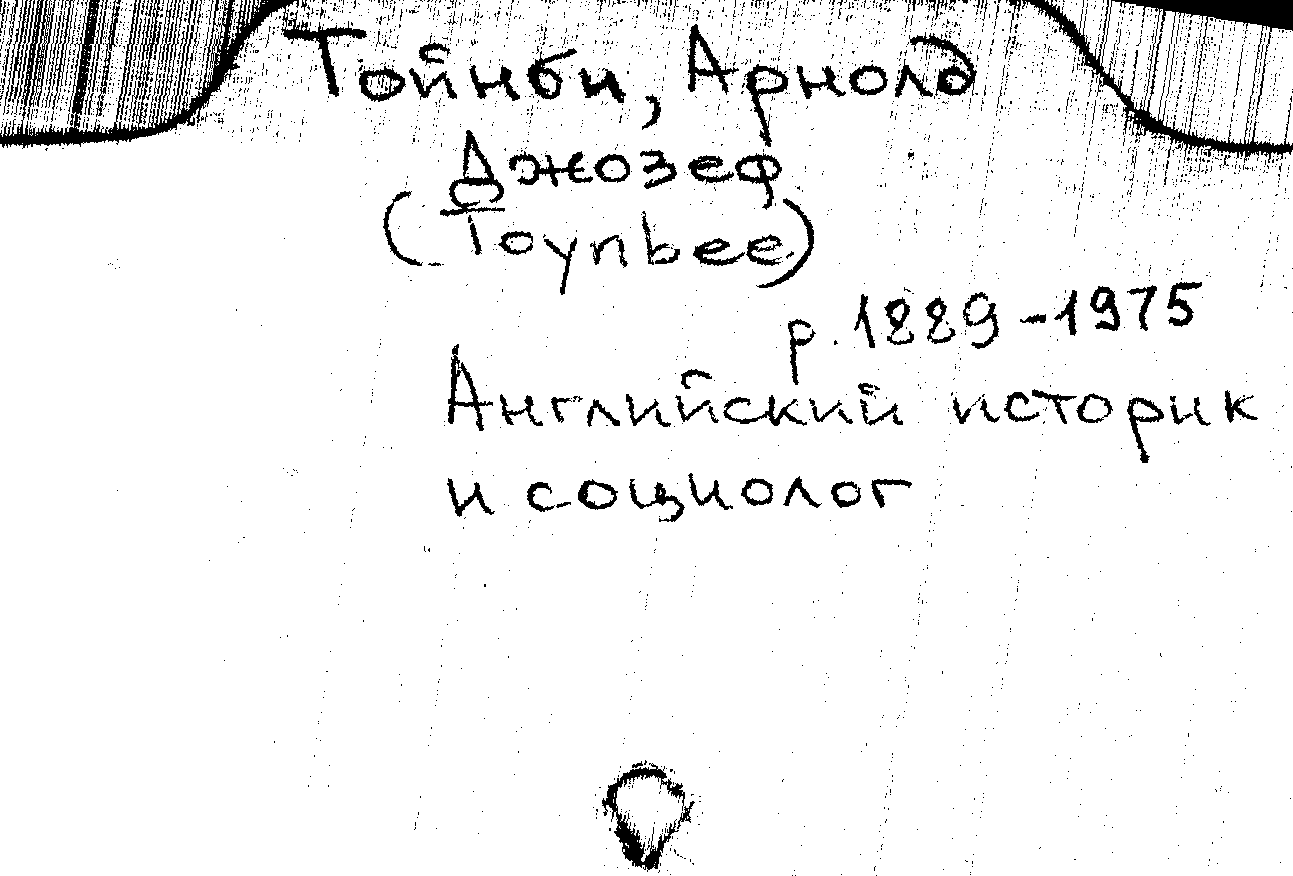 Тойнби, Арнолд
Джозеф
(Toynbee)
р. 1889-1975
Английский историк
и социолог